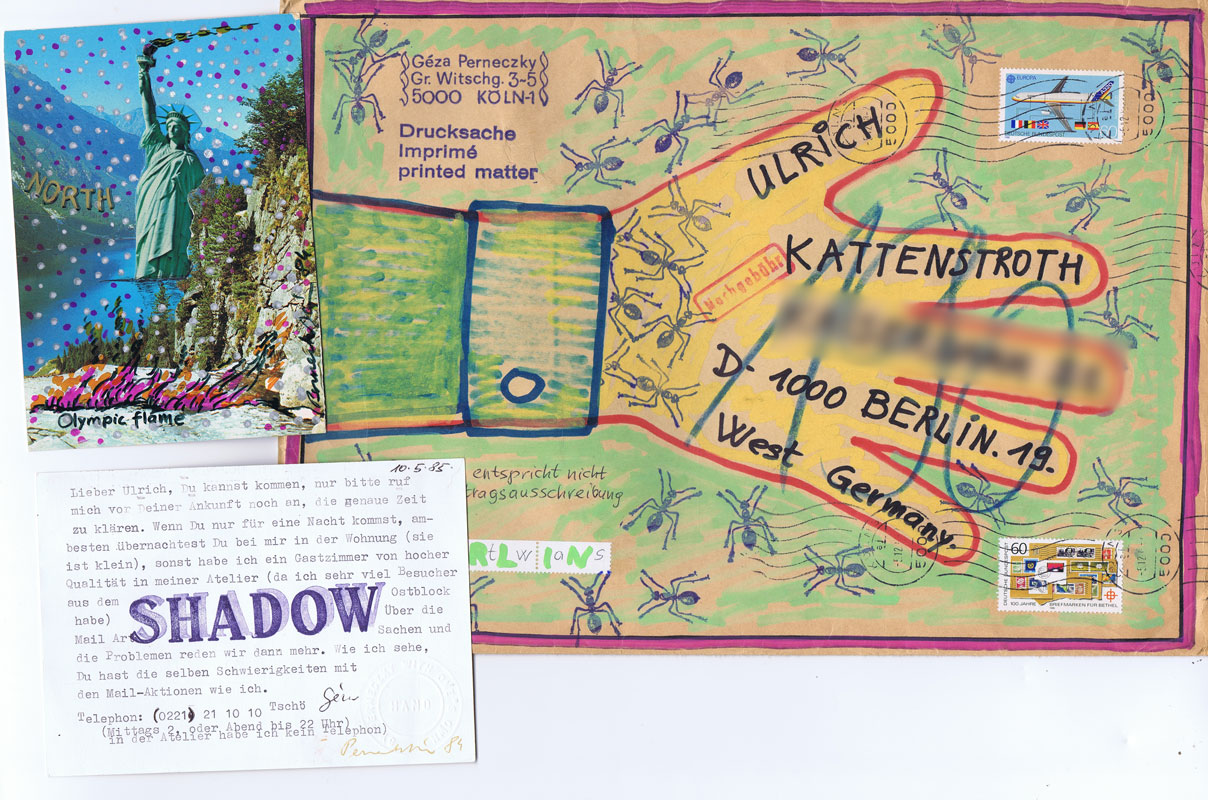 NORTH
Olympic flame
Géza Perneczky
Gr. Witschg. 3-5
5000 KÖLN-1
Drucksache
Imprimé
printed matter
EUROPA
DEUTSCHE BUNDESPOST
5000
5000
ULRICH
KATTENSTROTH
Nachgebühr
D-1000 BERLIN. 19.
West Germany.
entspricht nicht
tragsausschreibung
RtLwIaNs
60
DEUTSCHE BUNDESPOST
100 JAHRE BRIEFMARKEN FÜR BETHEL
5000
5000
10.5.85.
Lieber Ulrich, Du kannst kommen, nur bitte ruf
mich vor Deiner Ankunft noch an, die genaue Zeit
zu klären. Wenn Du nur für eine Nacht kommst, am-
besten übernachtest Du bei mir in der Wohnung (sie
ist klein), sonst habe ich ein Gastzimmer von hocher
Qualität in meiner Atelier (da ich sehr viel Besucher
aus dem Ostblock
habe) Über die
SHADOW
Mail Ar Sachen und
die Problemen reden wir dann mehr. Wie ich sehe,
Du hast die selben Schwierigkeiten mit
den Mail-Aktionen wie ich.
Tschö Géza
Telephon: (0221) 21 10 10
(Mittags 2, oder Abend bis 22 Uhr)
in der Atelier habe ich kein Telephon)
Perneczky 84